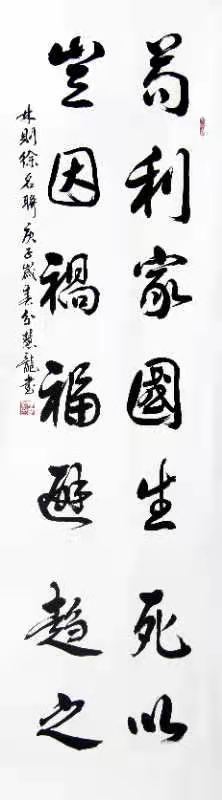 苟利家國生死以
豈因禍福避趨之
林則徐名聯 庚子歲 吴公慧龍書